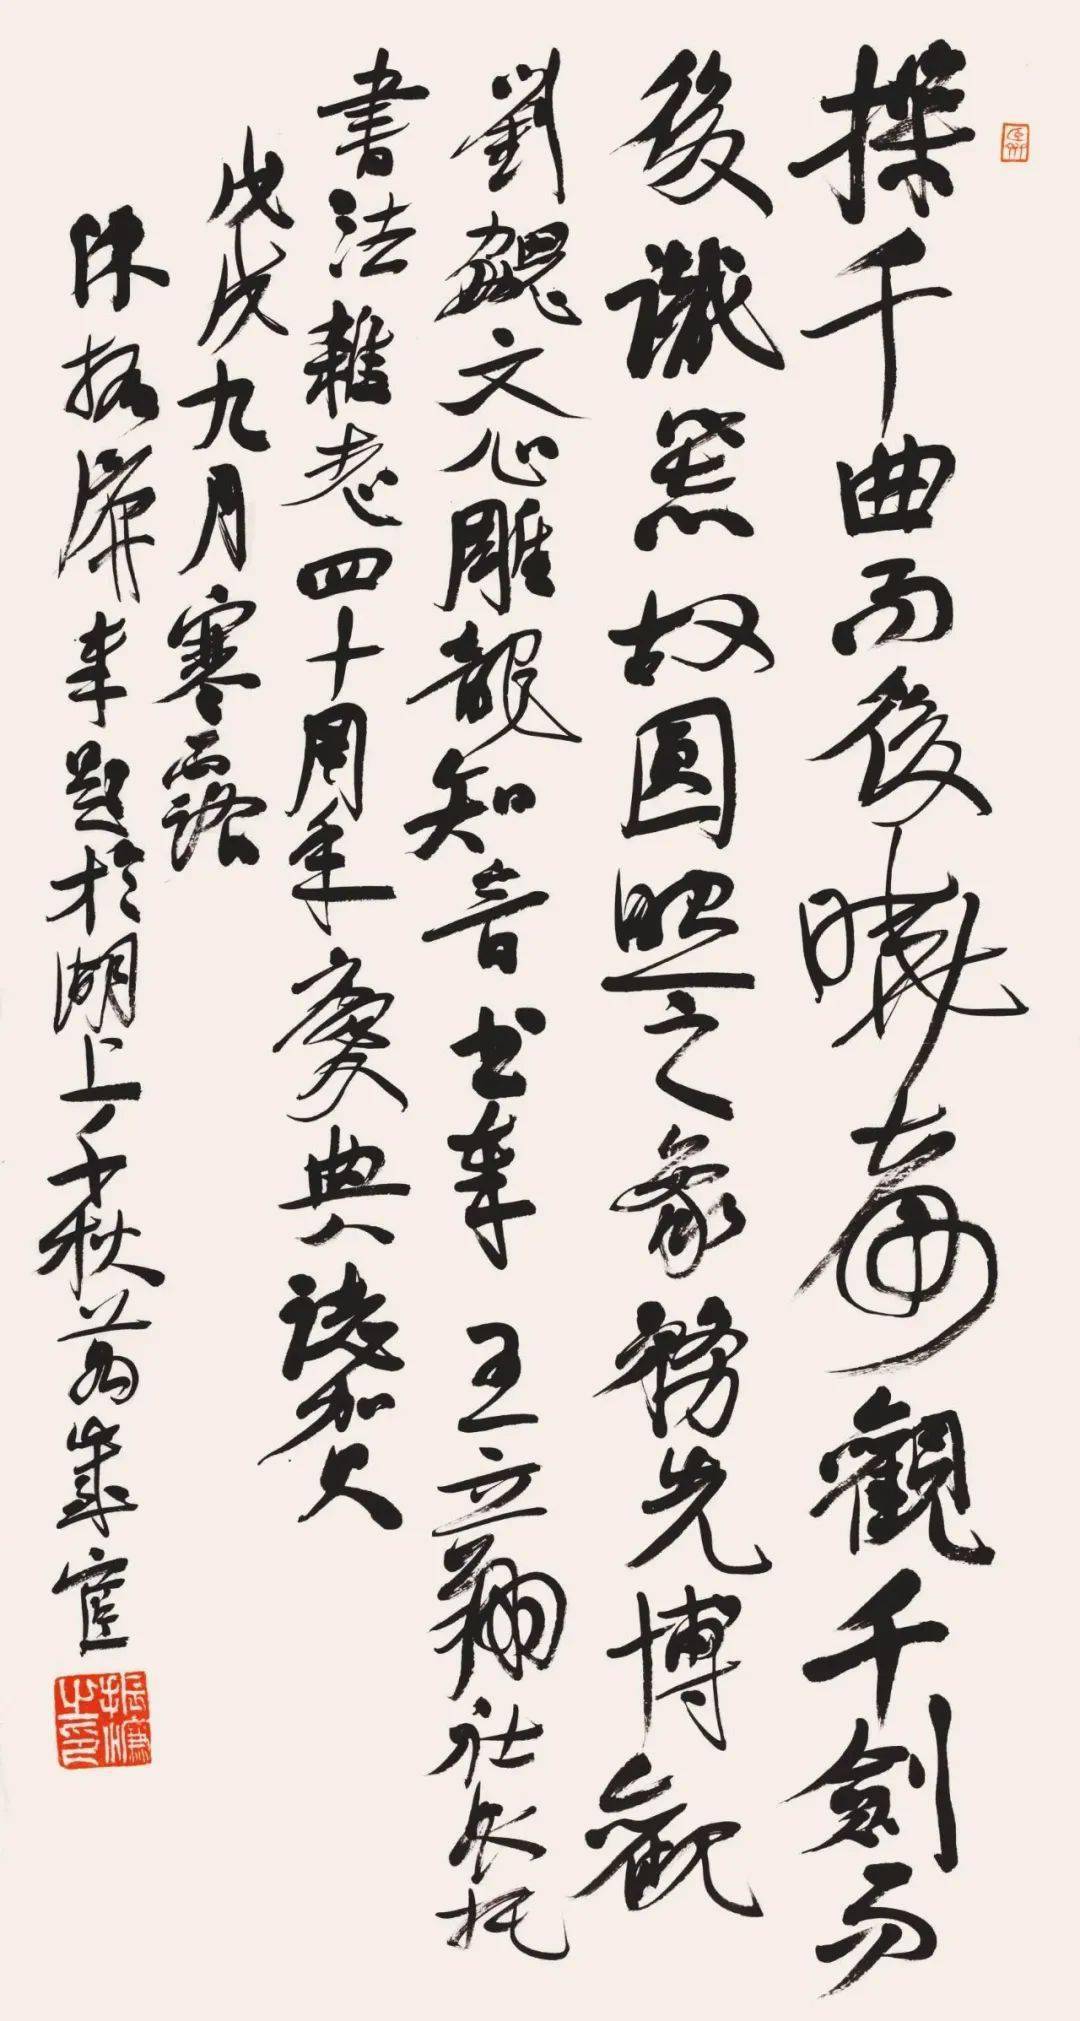 操千曲而後曉聲觀千劍而
後識器故圓照之象務先博觀
劉勰文心雕龍知音書奉 王立翔社長托
書法雜志四十周年慶典誌賀
戊戌九月寒露
陳振濂奉題於湖上千秋萬歲宧
振濂之印